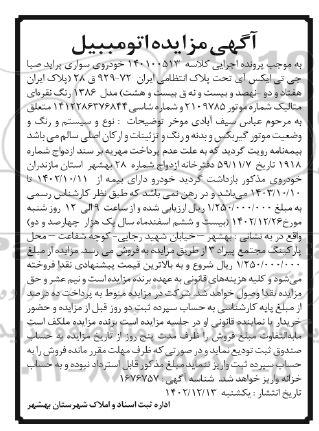 آگهی مزایده اتومبیل
به موجب پرونده اجرایی کلاسه ۱۴۰۱۰۰۵۱۳ خودروی سواری پراید صبا
جی تی ایکس آی تحت پلاک انتظامی ایران ۷۲-۹۲۹ ق ۲۸ (پلاک ایران
هفتاد و دو - نهصد و بیست و نه ق بیست و هشت) مدل ۱۳۸۶ رنگ نقره‌ای
متالیک شماره موتور ۲۱۰۹۷۸۵ و شماره شاسی ۱۴۱۲۲۸۶۲۷۶۸۴۴ متعلق
به مرحوم عباس سیف آبادی موخر توضیحات : نوع و سیستم و رنگ و
وضعیت موتور گیربکس و بدنه و رنگ و تزئینات و ارکان اصلی سالم می باشد
بیمه‌نامه رویت گردید که به علت عدم پرداخت مهریه بر سند ازدواج شماره
۱۹۱۸ تاریخ ۵۹/۱۱/۷ دفترخانه ازدواج شماره ۲۸ بهشهر استان مازندران
خودروی مذکور بازداشت گردید خودرو دارای بیمه از ۱۴۰۲/۱۰/۱۱ تا
۱۴۰۳/۱۰/۱۰ می‌باشد و در رهن نمی باشد که طبق نظر کارشناس رسمی
به مبلغ ۱/۲۵۰/۰۰۰/۰۰۰ ریال ارزیابی شده و از ساعت ۹ الی ۱۲ روز شنبه
مورخ ۱۴۰۲/۱۲/۲۶ (بیست و ششم اسفندماه سال یک هزار چهارصد و دو)
واقع در به نشانی : بهشهر – خیابان شهید رجایی- کوچه شفاعت – محل
پارکینگ مجتمع پیراد ۲ از طریق مزایده به فروش می رسد. مزایده از مبلغ
۱/۲۵۰/۰۰۰/۰۰۰ ریال شروع و به بالاترین قیمت پیشنهادی نقدا فروخته
می‌شود و کلیه هزینه‌های قانونی به عهده برنده مزایده است و نیم عشر و حق
مزایده نقدا وصول خواهد شد. شرکت در مزایده منوط به پرداخت ده درصد
از مبلغ پایه کارشناسی به حساب سپرده ثبت دو روز قبل از مزایده و حضور
خریدار یا نماینده قانونی او در جلسه مزایده است برنده مزایده مکلف است
مابه‌التفاوت مبلغ فروش را ظرف مدت پنج روز از تاریخ مزایده به حساب
صندوق ثبت تودیع نماید و در صورتی که ظرف مهلت مقرر مانده فروش را به
حساب سپرده ثبت واریز ننماید مبلغ مذکور قابل استرداد نبوده و به حساب
خزانه واریز خواهد شد. شناسه آگهی ۱۶۷۶۷۵۷
تاریخ انتشار : یکشنبه ۱۴۰۲/۱۲/۱۳
اداره ثبت اسناد و املاک شهرستان بهشهر